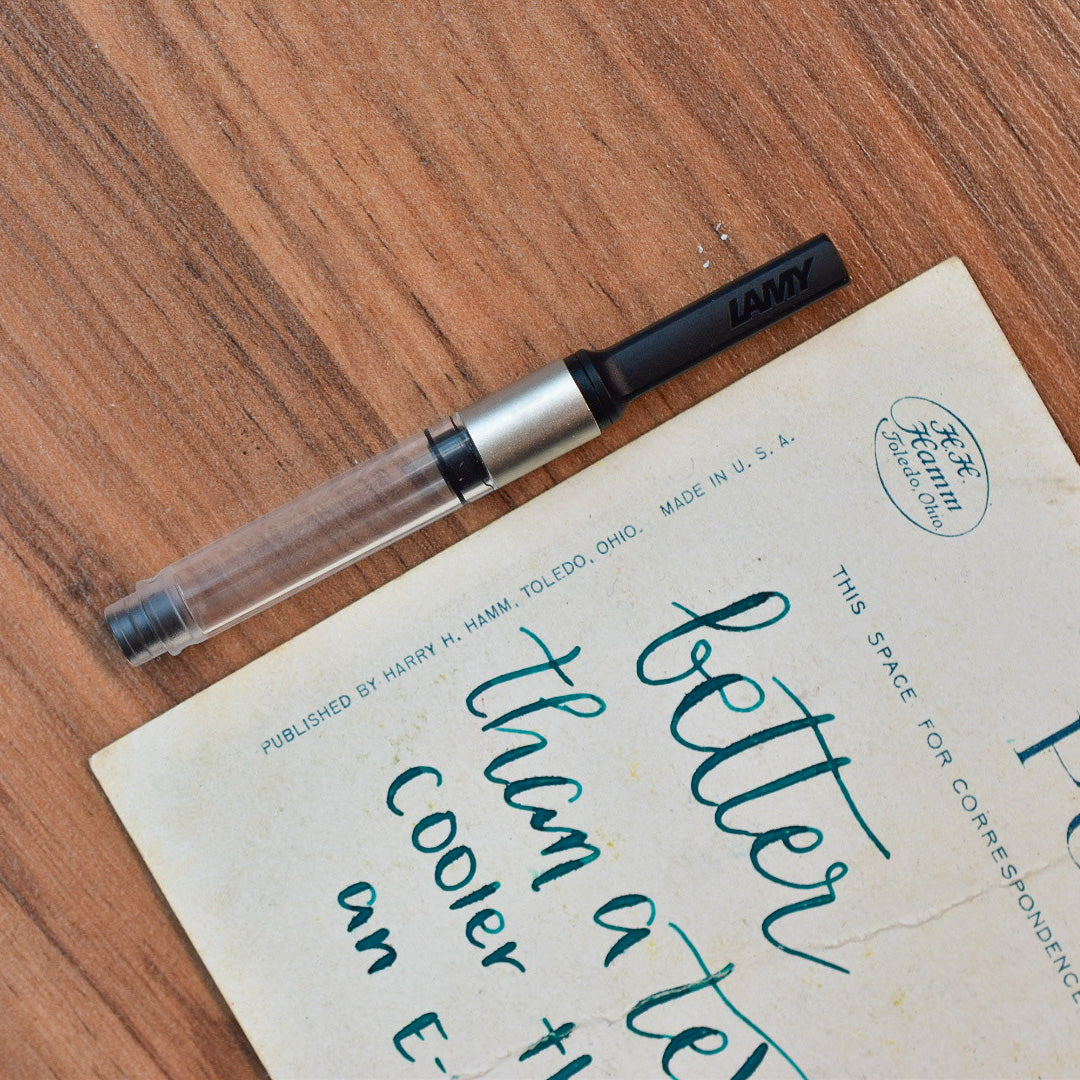 LAMY
H.H.
Hamm
Toledo, Ohio.
PUBLISHED BY HARRY H. HAMM, TOLEDO, OHIO. MADE IN U. S. A.
THIS SPACE FOR CORRESPONDENCE
better
than a
cooler
an E-